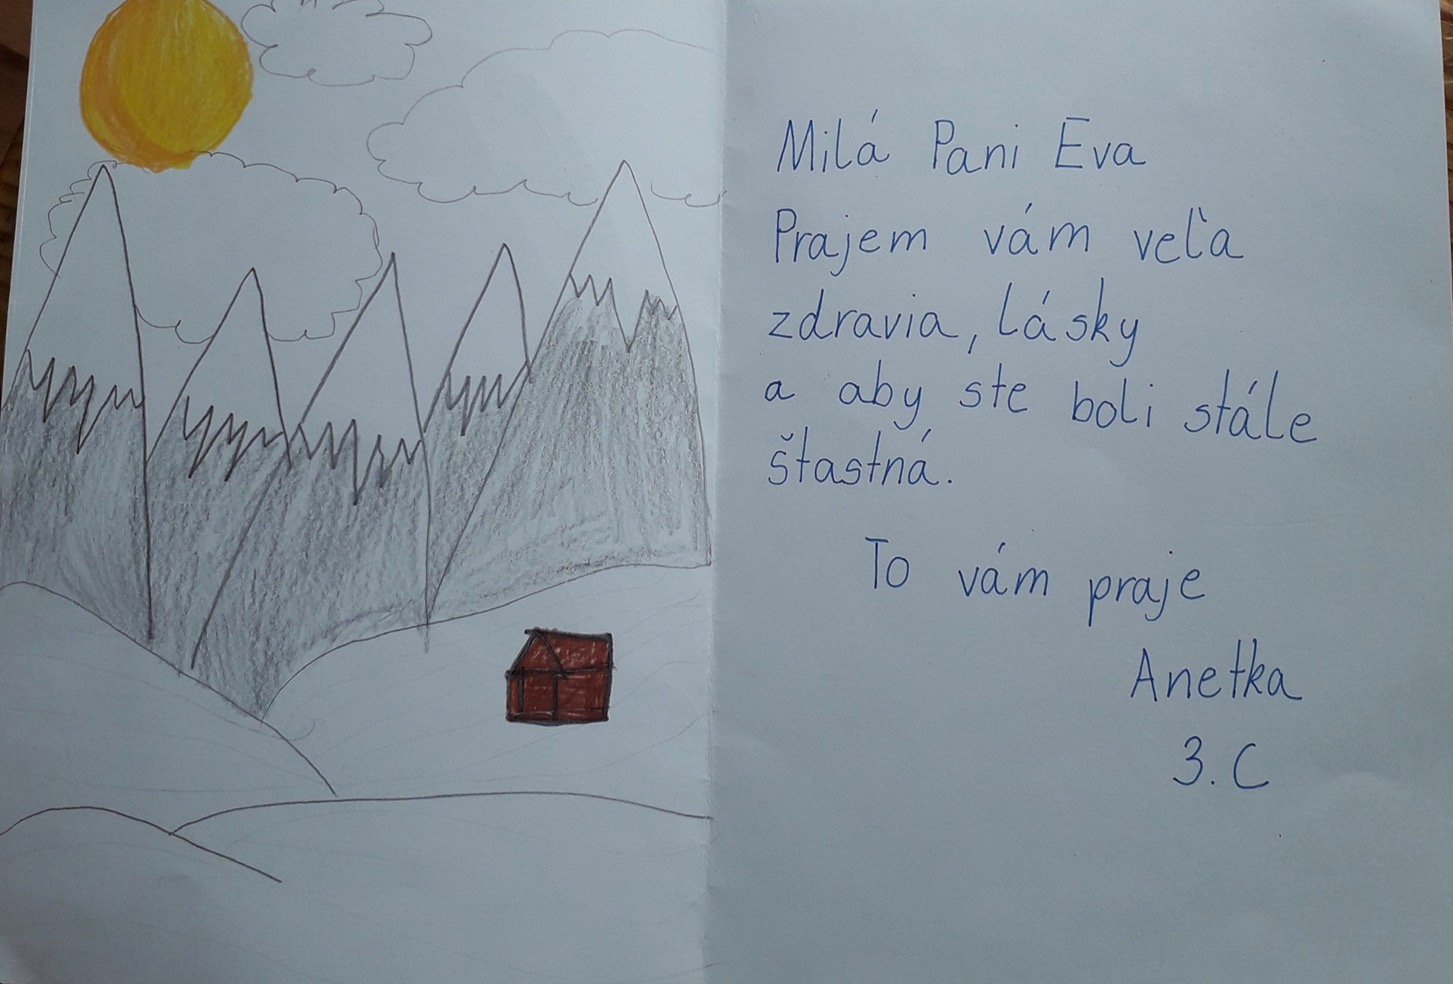 Milá Pani Eva
Prajem vám veľa
zdravia, lásky
a aby ste boli stále
štastná.
To vám praje
Anetka
3. C